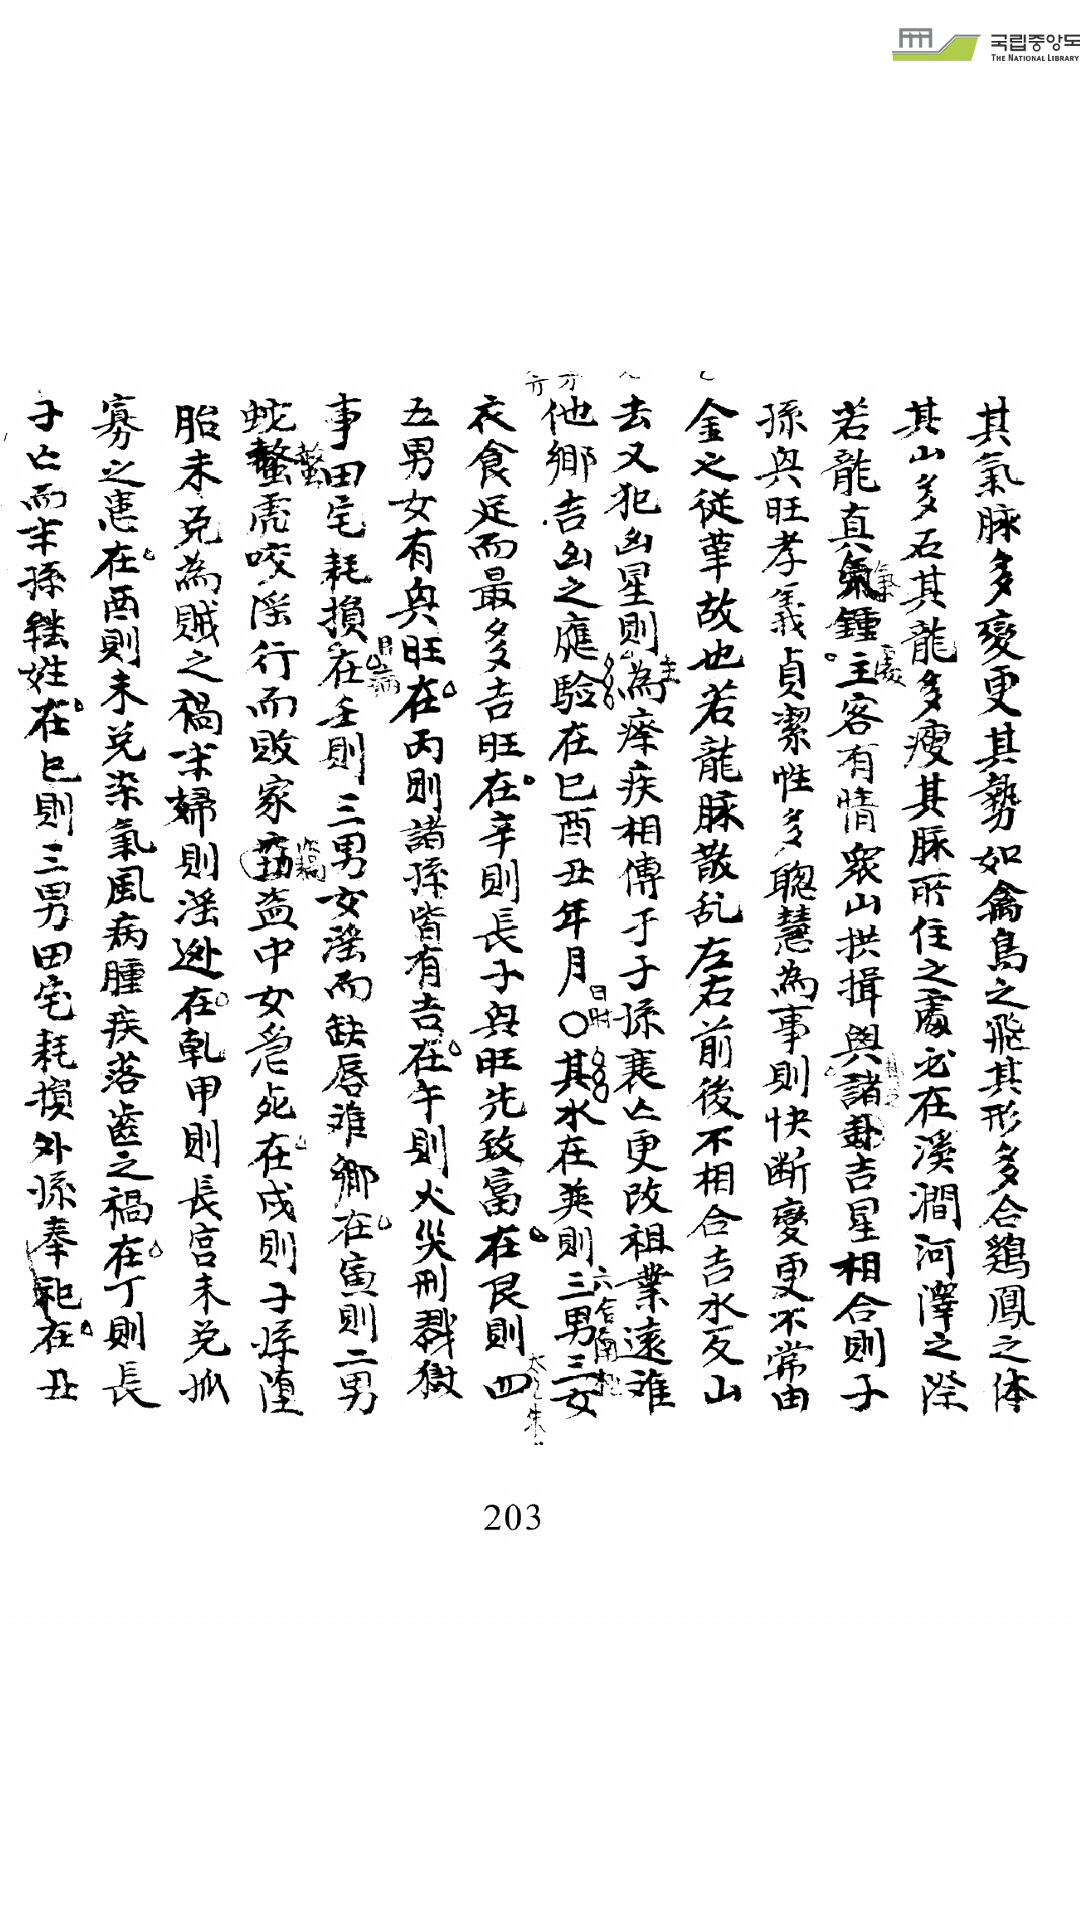 국립중앙도
THE NATIONAL LIBRARY
其氣脉多變更其勢如禽鳥之飛其形多合鷄鳳之体
其山多石其龍多瘦其脉所住之處必在溪澗河澤之際
若龍眞氣鍾主客有情衆山拱揖與諸卦吉星相合則子
孫興旺孝義貞潔性多聰慧為事則快断變更不常由
金之従革故也若龍脉散乱左右前後不相合吉水反山
去又犯凶星則為瘁疾相傳于子孫衰亡更改祖業遠離
他鄉吉凶之應驗在巳酉丑年月〇其水在巽則三男三女
衣食足而最多吉旺在辛則長子興旺先致富在艮則四
五男女有興旺在丙則諸孫皆有吉在午則火災刑戮獄
事田宅耗損在壬則三男女滛而缺唇離鄉在寅則二男
蛇螫虎咬滛行而敗家盜中女惡死在戌則子孫墮
胎未免為賊之禍求婦則滛逊在乾甲則長宮未免孤
寡之患在酉則未免染氣風病腫疾落齒之禍在丁則長
子亡而末孫継姓在巳則三男田宅耗損外孫奉祀在丑
203